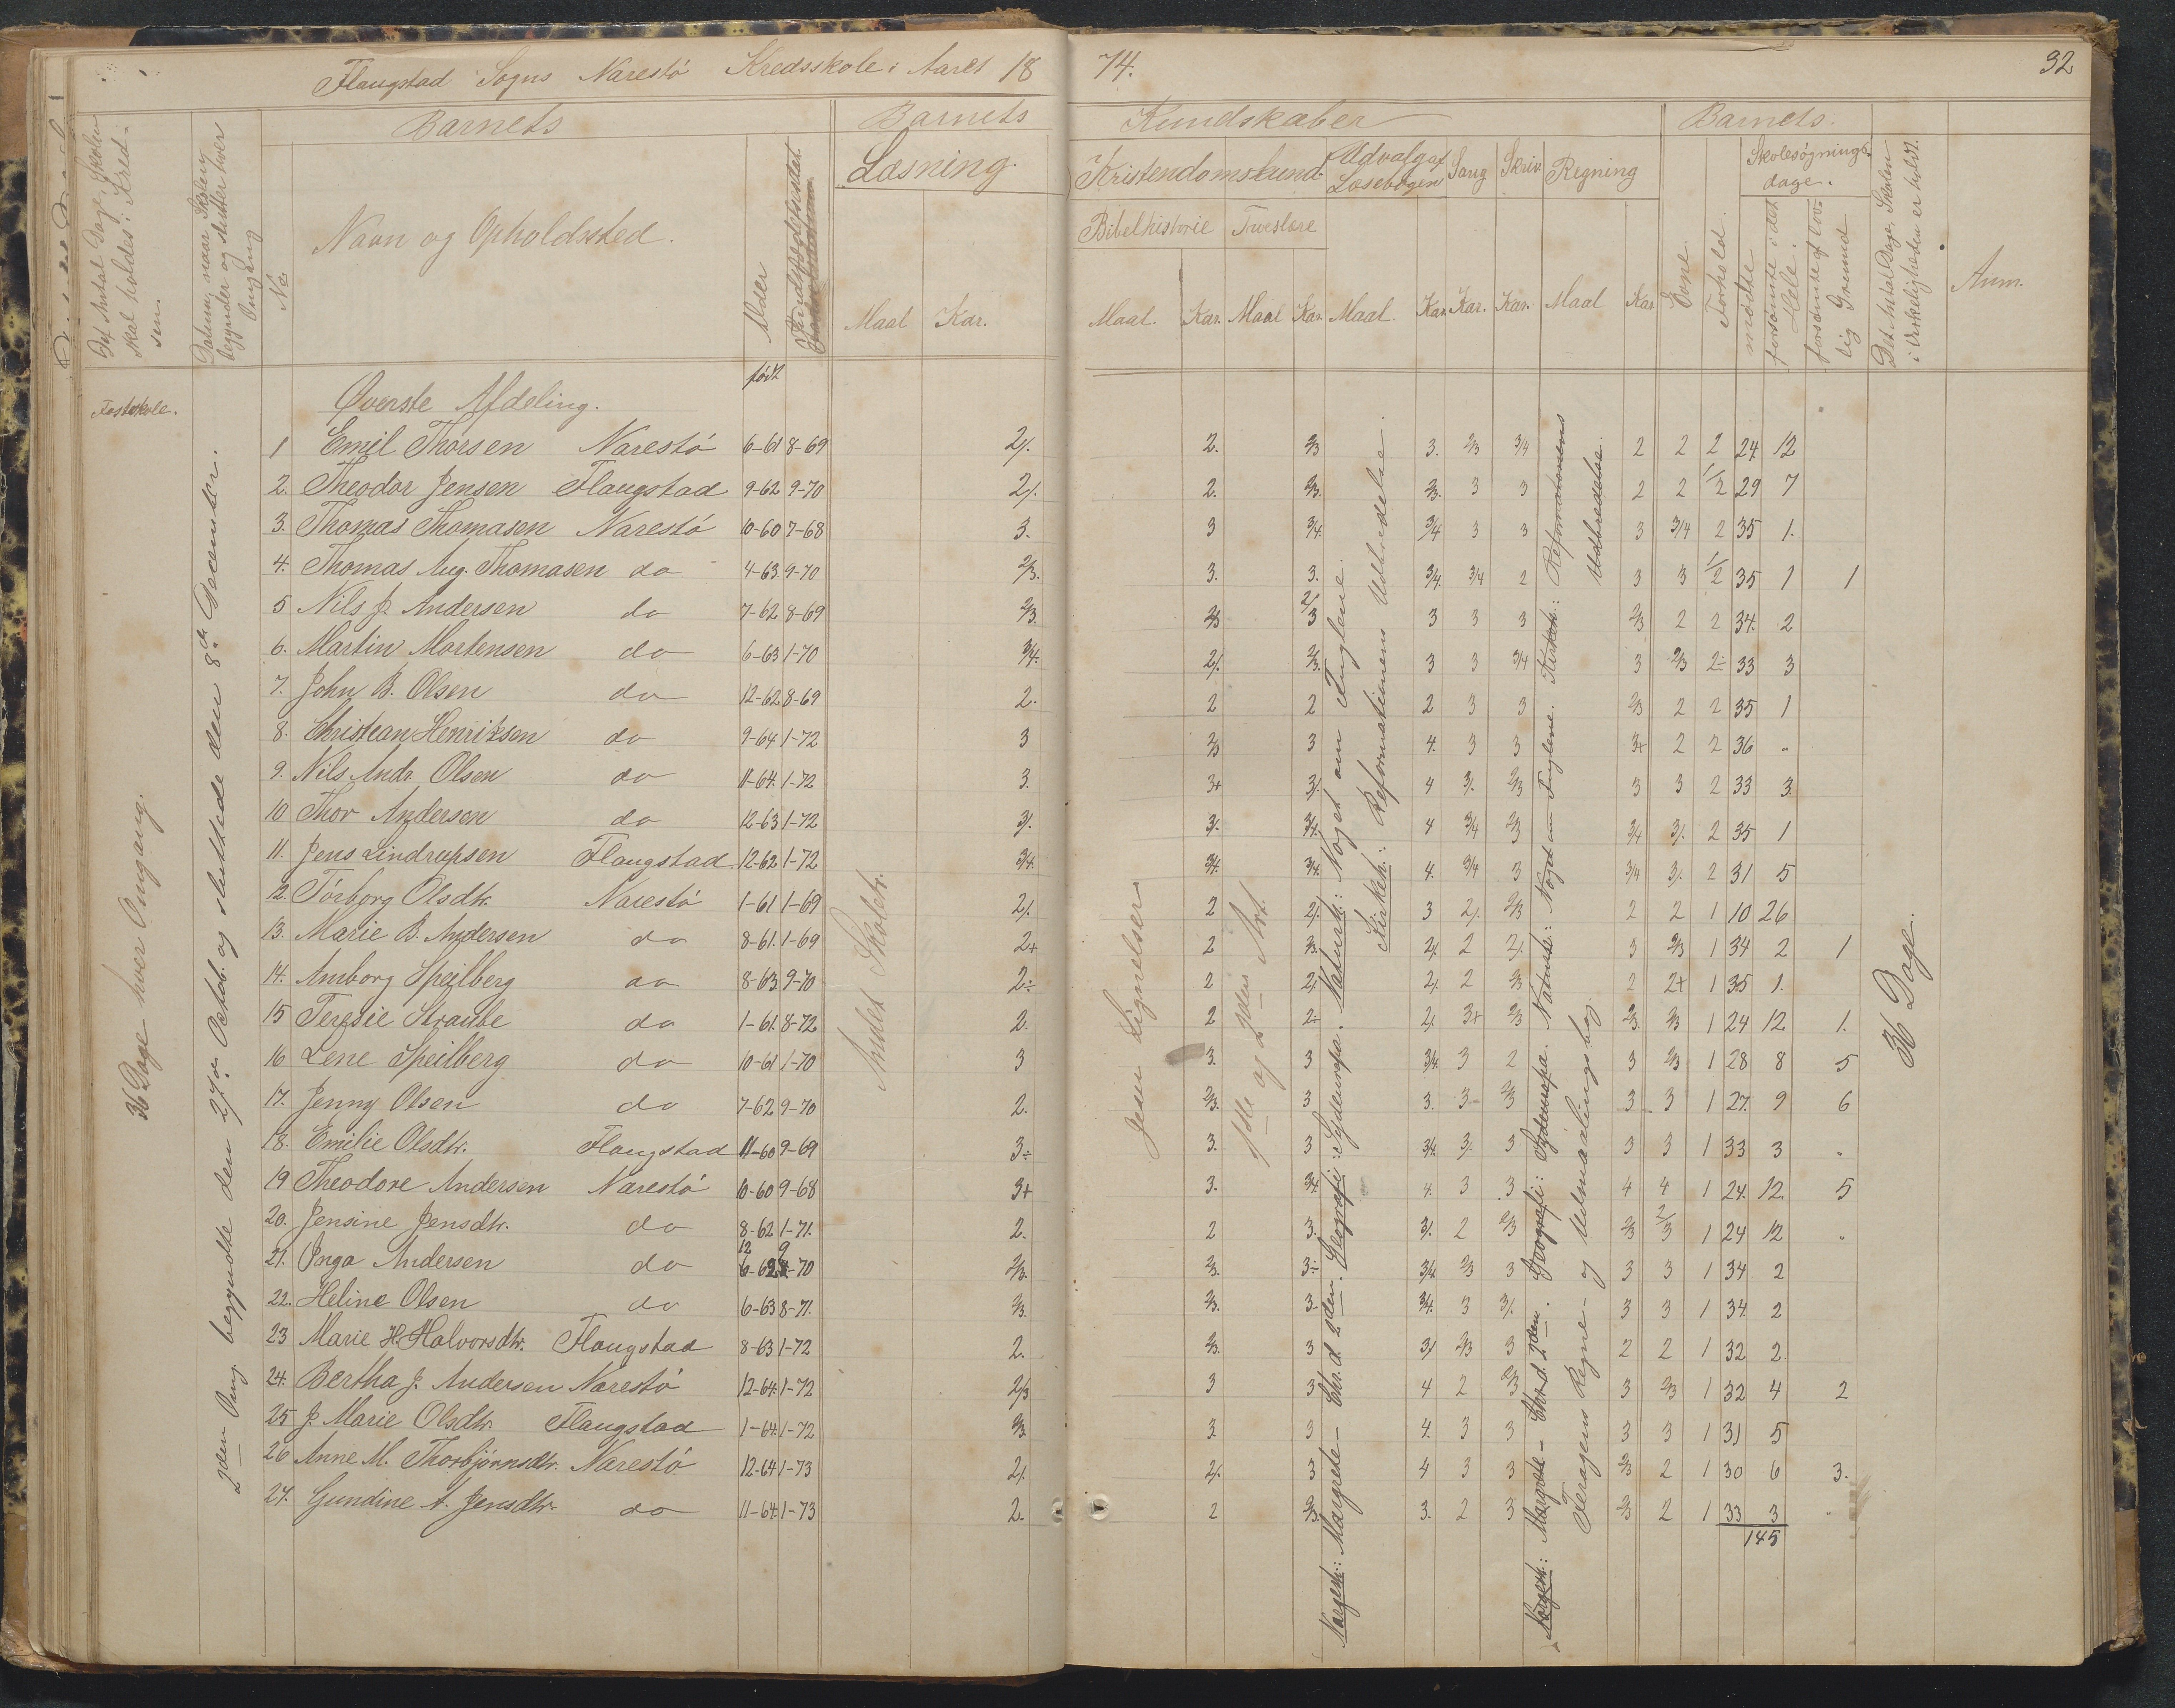 Flaugstad Sogns Narestö Kredsskole i Aaret 18 74. 32
Det Antal Dage, Skolen skal holdes i Kredsen.
Datum, naar Skolen begynder og slutter hver Omgang
No
Barnets
Navn og Opholdssted.
Alder
Indtrædelsestid
Barnets
Læsning.
Maal Kar.
Kundskaber
Kristendomskund.
Bibelhistorie Troeslære
Maal. Kar. Maal Kar.
Udvalg af Læsebogen
Maal. Kar.
Sang Kar.
Skriv. Kar.
Regning
Maal Kar.
Barnets.
Evne
Forhold.
Skolesøgningsdage.
mødte
forsømte i det Hele.
forsømte af lovlig Grund
Det Antal Dage, Skolen i Virkeligheden er holdt.
Anm.
Fastskole.
36 Dage hver Omgang.
2den Omg. begyndte den 27de Octob. og sluttede den 8de December.
født
Øverste Afdeling.
1 Emil Thorsen Narestö 6-61 8-69 2/. 2. 2/3 3. 2/3 3/4 2 2 2 24 12
2. Theodor Jensen Flaugstad 9-62 9-70 2/. 2. 2/3. 2/3. 3 3 2 2 1/2 29 7
3. Thomas Thomasen Narestö 10-60 7-68 3. 3 3/4. 3/4 3 3 3 3/4 2 35 1.
4. Thomas Aug. Thomasen do 4-63 9-70 2/3. 3. 3. 3/4. 3/4 2 3 3 1/2 35 1 1
5 Nils J. Andersen do 7-62 8-69 2/3. 2/3 2/3 3 3 3 2/3 2 2 34. 2
6. Martin Mortensen do 6-63 1-70 3/4. 2/. 2/3. 3 3 3/4 3 2/3 2÷ 33 3
7. John B. Olsen do 12-62 8-69 2. 2 2 2 3 3 2/3 2 2 35 1
8. Christean Henriksen do 9-64 1-72 3 2/3 3 4. 3 3 3+ 2 2 36 "
9. Nils Andr. Olsen do 11-64. 1-72 3. 3+ 3/. 4 3/. 2/3 3 3 2 33 3.
10 Thor Andersen do 12-63 1-72 3/. 3/. 3/4. 4 3/4 2/3 3/4 3/. 2 35 1
11. Jens Lindrupsen Flaugstad. 12-62 1-72 3/4. 3/4. 3/4. 4. 3/4 3 3/4 3/. 2 31 5
12. Törborg Olsdtr. Narestö 1-61 1-69 2/. 2 2/. 3 2/. 2/3 2 2 1 10 26
13. Marie B. Andersen do 8-61. 1-69 2+ 2 2/3. 2/. 2 2/. 3 2/3 1 34 2 1
14. Amborg Speilberg do 8-63 9-70 2÷ 2 2/. 2/. 2 2/3 2 2+ 1 35 1.
15 Teresie Straube do 1-61. 8-72 2. 2 2÷ 2/. 3+ 2/3 2/3. 2/3 1 24 12 1.
16 Lene Speilberg do 10-61 1-70 3 3. 3 3/4. 3 2 3 2/3 1 28 8 5
17. Jenny Olsen do 7-62 9-70 2. 2/3. 3 3. 3 2/3 3 3 1 27. 9 6
18. Emilie Olsdtr. Flaugstad 11-60 9-69 3÷ 3. 3 3/4. 3/. 3 3 3 1 33 3 "
19 Theodore Andersen Narestö 10-60 9-68 3+ 3. 3/4. 4. 3 3 4 4 1 24. 12. 5
20. Jensine Jensdtr. do 8-62 1-71. 2. 2 3. 3/. 2 2/3 2/3 2/3 1 24 12 "
21. Inga Andersen do 12 9 6-62 -70 2/3. 2/3. 3÷ 3/4 2/3 3 3 3 1 34 2
22. Heline Olsen do 6-63 8-71. 2/3. 2/3. 3. 3/4. 3 3/. 3 3 1 34. 2
23 Marie H. Halvorsdtr. Flaugstad 8-63 1-72 2. 2/3. 3 3/. 2/3 3 2 2 1 32 2
24. Bertha J. Andersen Narestö 12-64. 1-72 2/3 3 3 4 2 2/3 3 2/3 1 32 4 2
25 J. Marie Olsdtr. Flaugstad 1-64. 1-72 2/3. 3. 3 4. 3 3 3 3 1 31 5
26 Anne M. Thorbjörnsdtr. Narestö 12-64 1-73 2/. 2/. 3 4 3 3 2/3 2 1 30 6 3.
27. Gundine A. Jensdtr. do 11-64. 1-73 2. 2 2/3. 3. 2 3 2/3 2 1 33 3 "
145
Andet Skoletr.
Jesu Lignelser
1ste og 2den Art.
Norgesh.: Margrete – Chr. d. 2den. Geografi: Sydeuropa. Naturh.: Noget om Fuglene.
Kirkeh.: Reformationens Udbredelse.
Norgesh.: Margrete – Chr. d. 2den. Geografi: Sydeuropa. Naturh.: Noget om Fuglene. Kirkeh.: Reformationens Udbredelse.
Feragens Regne- og Udmaalingsbog.
36 Dage.